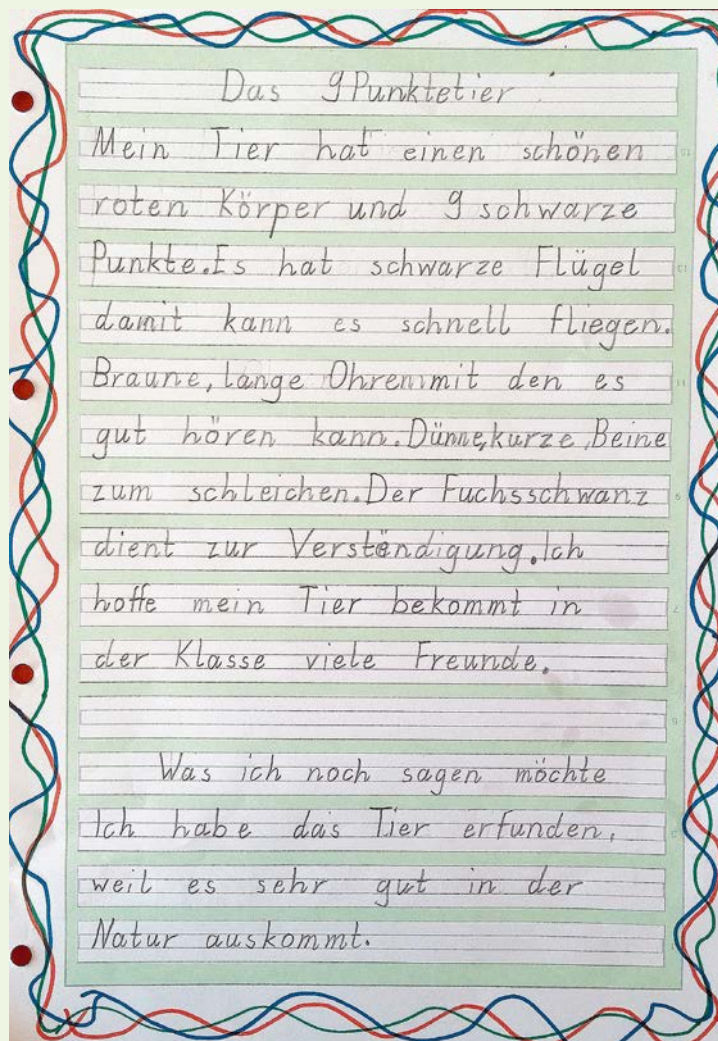 Das 9Punktetier
Mein Tier hat einen schönen
roten Körper und 9 schwarze
Punkte.Es hat schwarze Flügel
damit kann es schnell fliegen.
Braune, lange Ohren mit den es
gut hören kann. Dünne, kurze, Beine
zum schleichen. Der Fuchsschwanz
dient zur Verständigung. Ich
hoffe mein Tier bekommt in
der Klasse viele Freunde.
Was ich noch sagen möchte
Ich habe das Tier erfunden,
weil es sehr gut in der
Natur auskommt.